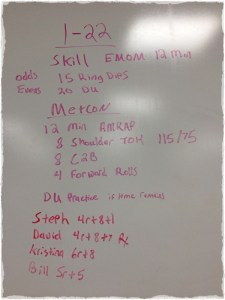 1-22
Skill EMOM 12 Min
odds 15 Ring Dips
Evens 20 DU
Metcon
12 Min AMRAP
8 Shoulder TOH 115/75
8 C2B
4 Forward Rolls
DU Practice if time
Steph 4r+8+1
David 4r+8+7 Rx
Kristina 6r+8
Bill 5r+5